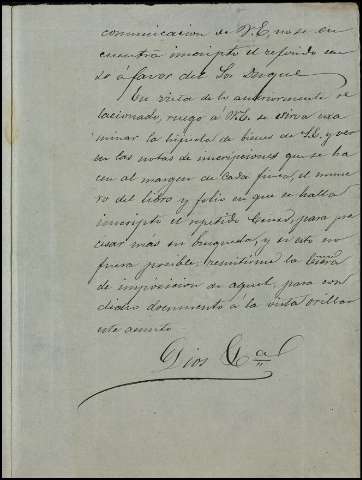 comunicacion de V.E, no se en
cuentra inscripto el referido cen
so á favor del Sor Duque
En vista de lo anteriormente re
lacionado, ruego á V.E. se sirva exa
minar la hijuela de bienes de S.E, y ver
en las notas de inscripciones que se ha
cen al margen de cada finca, el nume
ro del libro y folio en que se halla
inscripto el repetido Censo, para pre
cisar mas su busqueda, y si esto no
fuera posible, remitirme la Escra
de imposicion de aquel, para con
dicho documento á la vista orillar
este asunto.
Dios &a